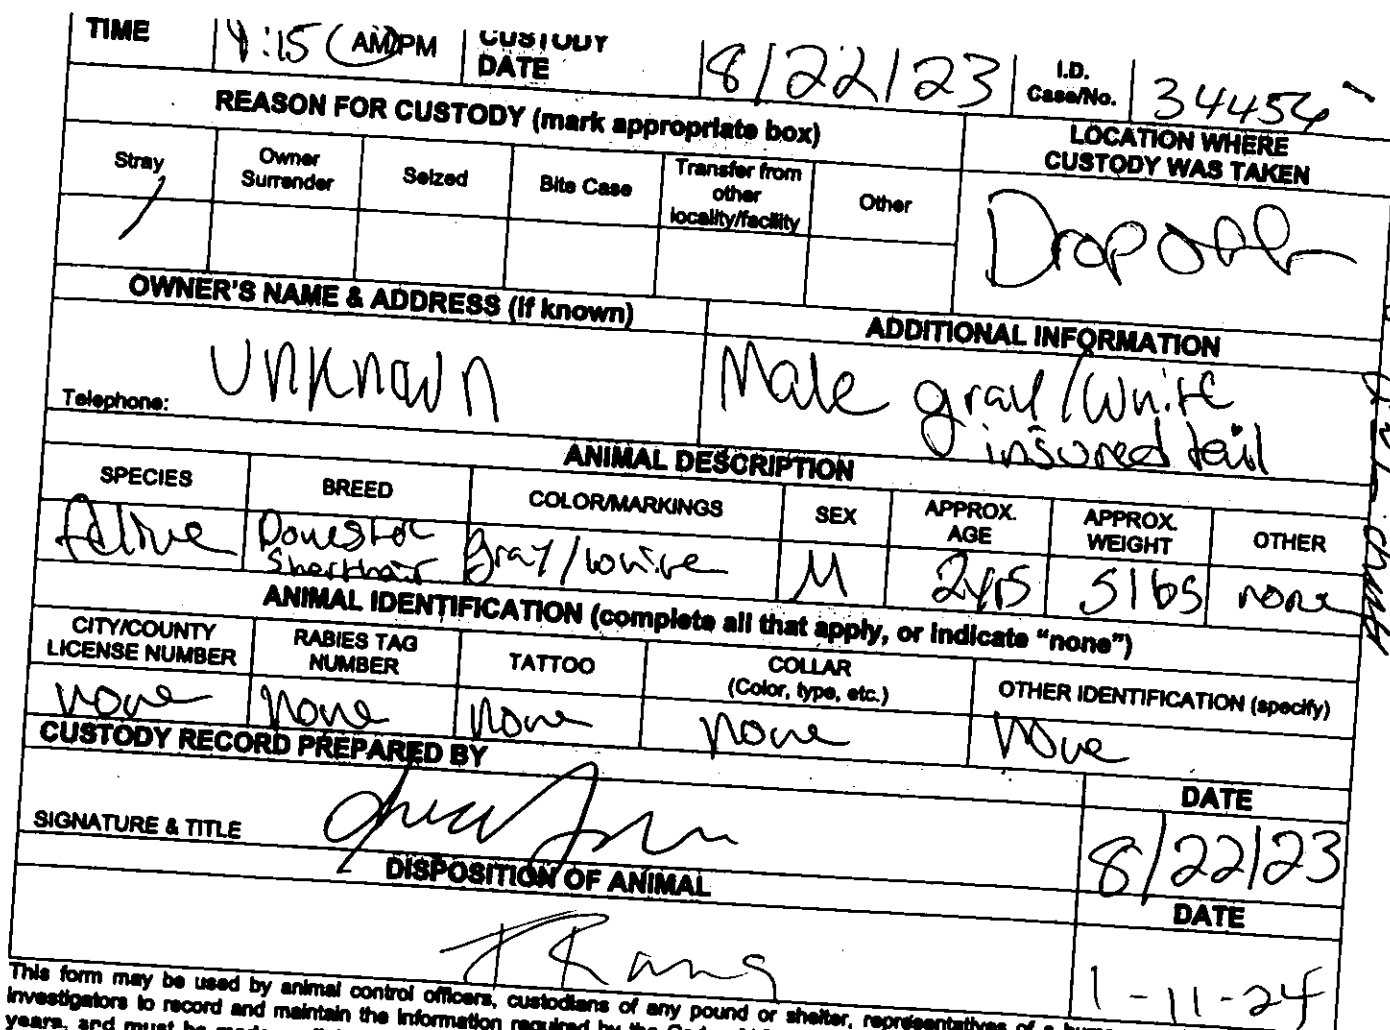 TIME :15 AM/PM CUSTODY DATE 8/22/23 I.D. Case/No. 34456
REASON FOR CUSTODY (mark appropriate box)
LOCATION WHERE CUSTODY WAS TAKEN
Stray Owner Surrender Seized Bite Case Transfer from other locality/facility Other
/
Drop off
OWNER'S NAME & ADDRESS (If known)
ADDITIONAL INFORMATION
Unknown
Telephone:
Male gray/white
insured tail
ANIMAL DESCRIPTION
SPECIES BREED COLOR/MARKINGS SEX APPROX. AGE APPROX. WEIGHT OTHER
feline Domestic Shorthair gray/white M 2yrs 5lbs none
ANIMAL IDENTIFICATION (complete all that apply, or indicate "none")
CITY/COUNTY LICENSE NUMBER RABIES TAG NUMBER TATTOO COLLAR (Color, type, etc.) OTHER IDENTIFICATION (specify)
none none none none none
CUSTODY RECORD PREPARED BY
DATE
SIGNATURE & TITLE
8/22/23
DISPOSITION OF ANIMAL
DATE
1-11-24
This form may be used by animal control officers, custodians of any pound or shelter, representatives of a
investigators to record and maintain the information required by the
years, and must be